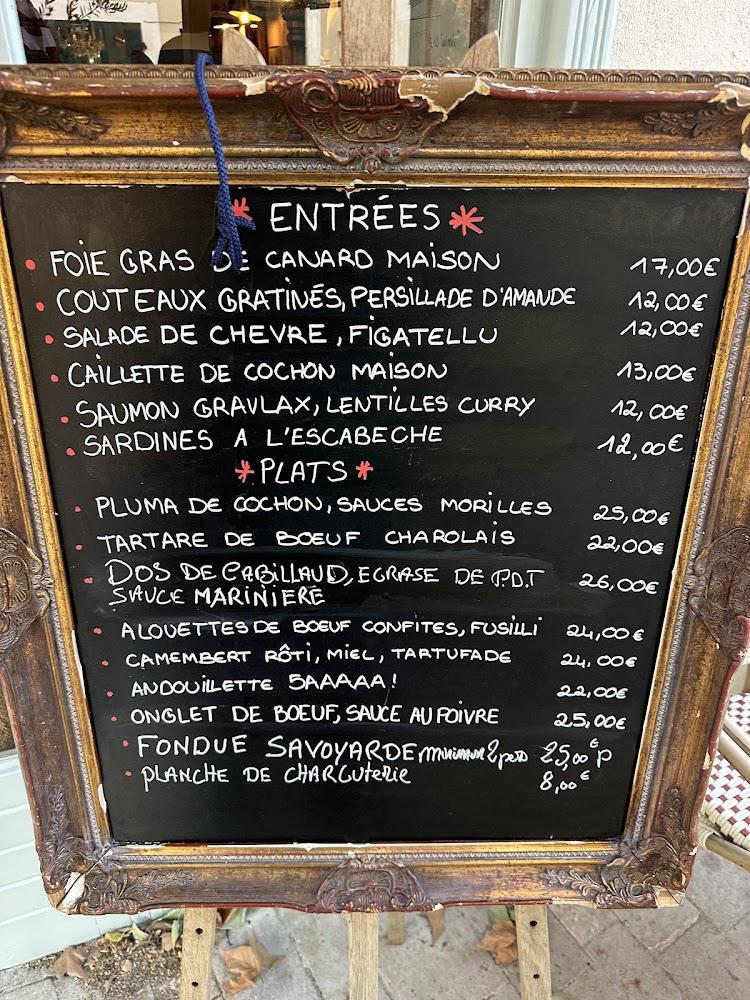 * ENTRÉES *
• FOIE GRAS DE CANARD MAISON 17,00€
• COUTEAUX GRATINÉS, PERSILLADE D'AMANDE 12,00€
• SALADE DE CHEVRE, FIGATELLU 12,00€
• CAILLETTE DE COCHON MAISON 13,00€
• SAUMON GRAVLAX, LENTILLES CURRY 12,00€
• SARDINES A L'ESCABECHE 12,00€
* PLATS *
• PLUMA DE COCHON, SAUCES MORILLES 25,00€
• TARTARE DE BOEUF CHAROLAIS 22,00€
• DOS DE CABILLAUD, EGRASE DE P.D.T 26,00€
SAUCE MARINIERE
• ALOUETTES DE BOEUF CONFITES, FUSILLI 24,00€
• CAMEMBERT RÔTI, MIEL, TARTUFADE 24,00€
• ANDOUILLETTE 5AAAAA! 22,00€
• ONGLET DE BOEUF, SAUCE AU POIVRE 25,00€
• FONDUE SAVOYARDE minimum 2 pers 25,00€ p
• PLANCHE DE CHARCUTERIE 8,00€